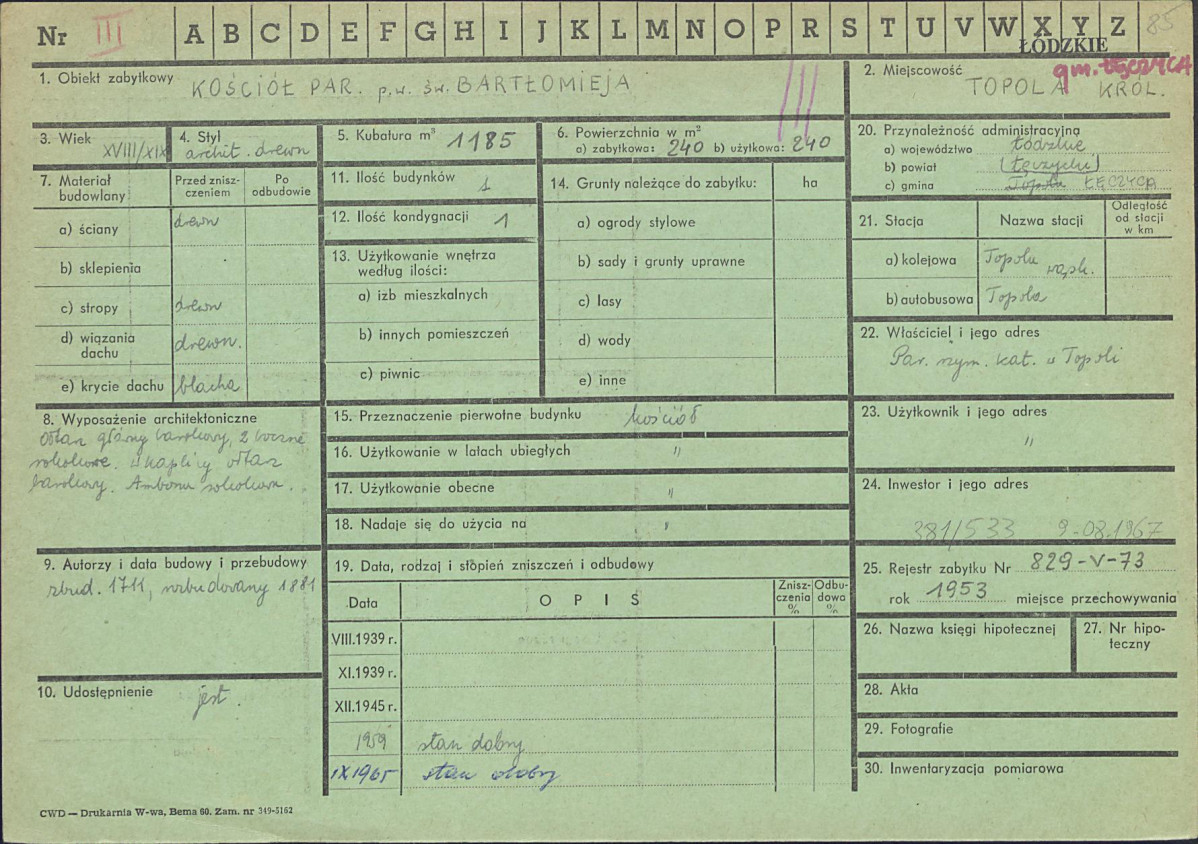 Nr III A B C D E F G H I J K L M N O P R S T U V W X Y Z 85
ŁÓDZKIE
1. Obiekt zabytkowy KOŚCIÓŁ PAR. p.w. św. BARTŁOMIEJA III
2. Miejscowość gm. ŁĘCZYCA
TOPOLA KRÓL.
3. Wiek XVIII/XIX
4. Styl
archit. drewn
5. Kubatura m³ 1185
6. Powierzchnia w m²
a) zabytkowa: 240 b) użytkowa: 240
20. Przynależność administracyjna
a) województwo Łódzkie
b) powiat (Łęczycki)
c) gmina Topola ŁĘCZYCA
7. Materiał budowlany:
Przed znisz-
czeniem
Po
odbudowie
a) ściany drewn
b) sklepienia
c) stropy drewn
d) wiązania
dachu drewn.
e) krycie dachu blacha
11. Ilość budynków 1
12. Ilość kondygnacji 1
13. Użytkowanie wnętrza
według ilości:
a) izb mieszkalnych
b) innych pomieszczeń
c) piwnic
14. Grunty należące do zabytku: ha
a) ogrody stylowe
b) sady i grunty uprawne
c) lasy
d) wody
e) inne
21. Stacja Nazwa stacji
Odległość
od stacji
w km
a) kolejowa Topola wąsk.
b) autobusowa Topola
22. Właściciel i jego adres
Par. rzym. kat. w Topoli
8. Wyposażenie architektoniczne
Ołtarz główny barokowy, 2 boczne
rokokowe. w kaplicy ołtarz
barokowy. Ambona rokokowa.
15. Przeznaczenie pierwotne budynku kościół
16. Użytkowanie w latach ubiegłych "
17. Użytkowanie obecne "
18. Nadaje się do użycia na "
23. Użytkownik i jego adres
"
24. Inwestor i jego adres
381/533 9-08.1967
9. Autorzy i data budowy i przebudowy
zbud. 1711, rozbudowany 1881
10. Udostępnienie jest.
19. Data, rodzaj i stopień zniszczeń i odbudowy
Data O P I S
Znisz-
czenia
%
Odbu-
dowa
%
VIII.1939 r.
XI.1939 r.
XII.1945 r.
1959 stan dobry
IX 1965 stan dobry
25. Rejestr zabytku Nr 829-V-73
rok 1953 miejsce przechowywania
26. Nazwa księgi hipotecznej
27. Nr hipo-
teczny
28. Akta
29. Fotografie
30. Inwentaryzacja pomiarowa
CWD — Drukarnia W-wa, Bema 60. Zam. nr 349-5162